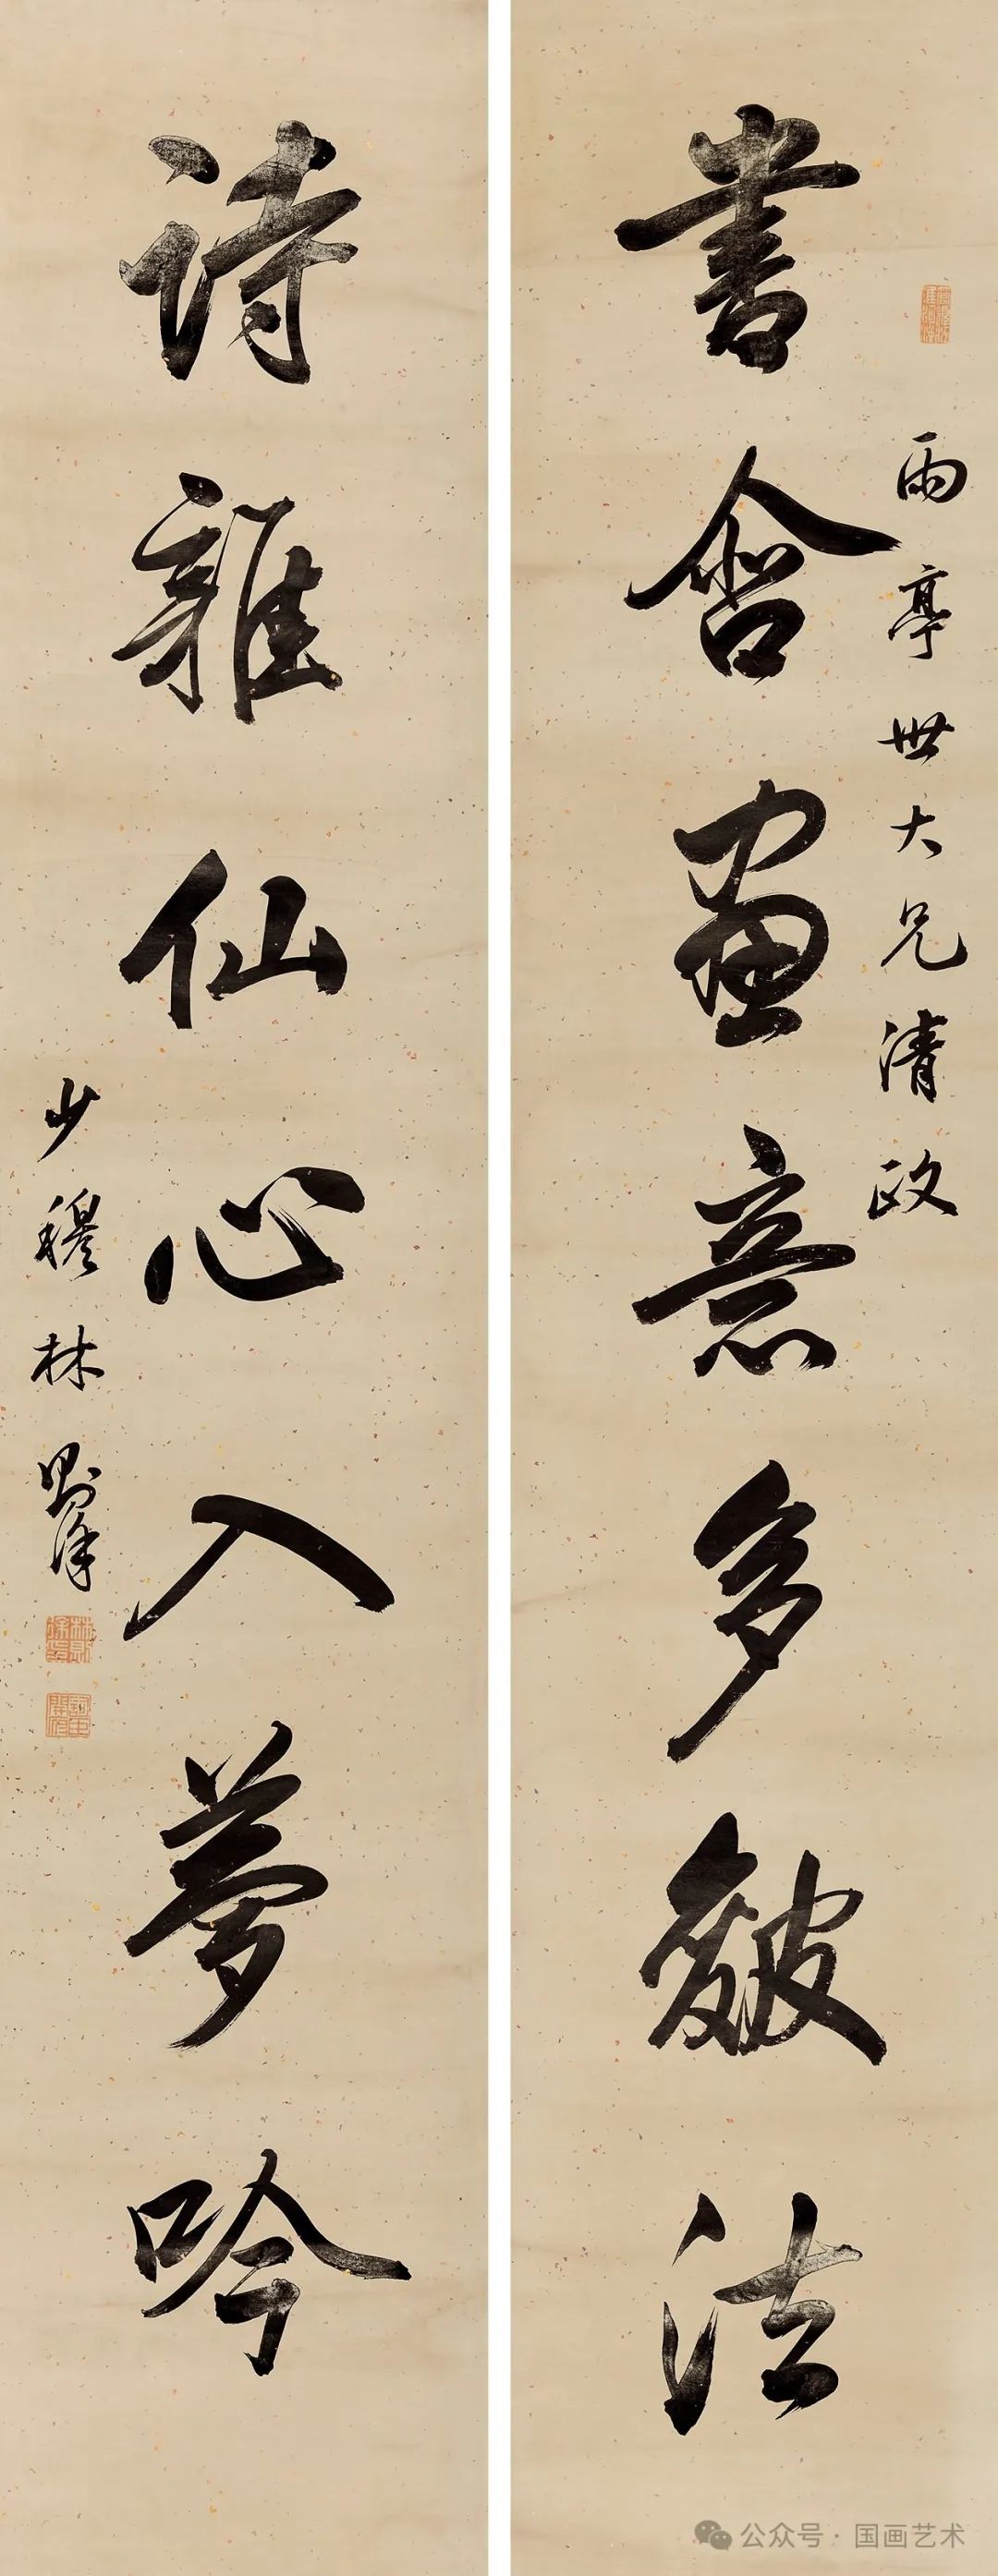 書含畫意多皴法
雨亭世大兄清政
詩雜仙心入夢吟
少穆林則徐
公众号·国画艺术